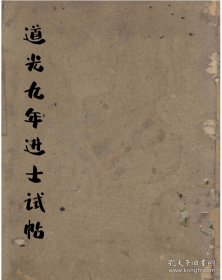 道光九年进士试帖
孔夫子旧书网